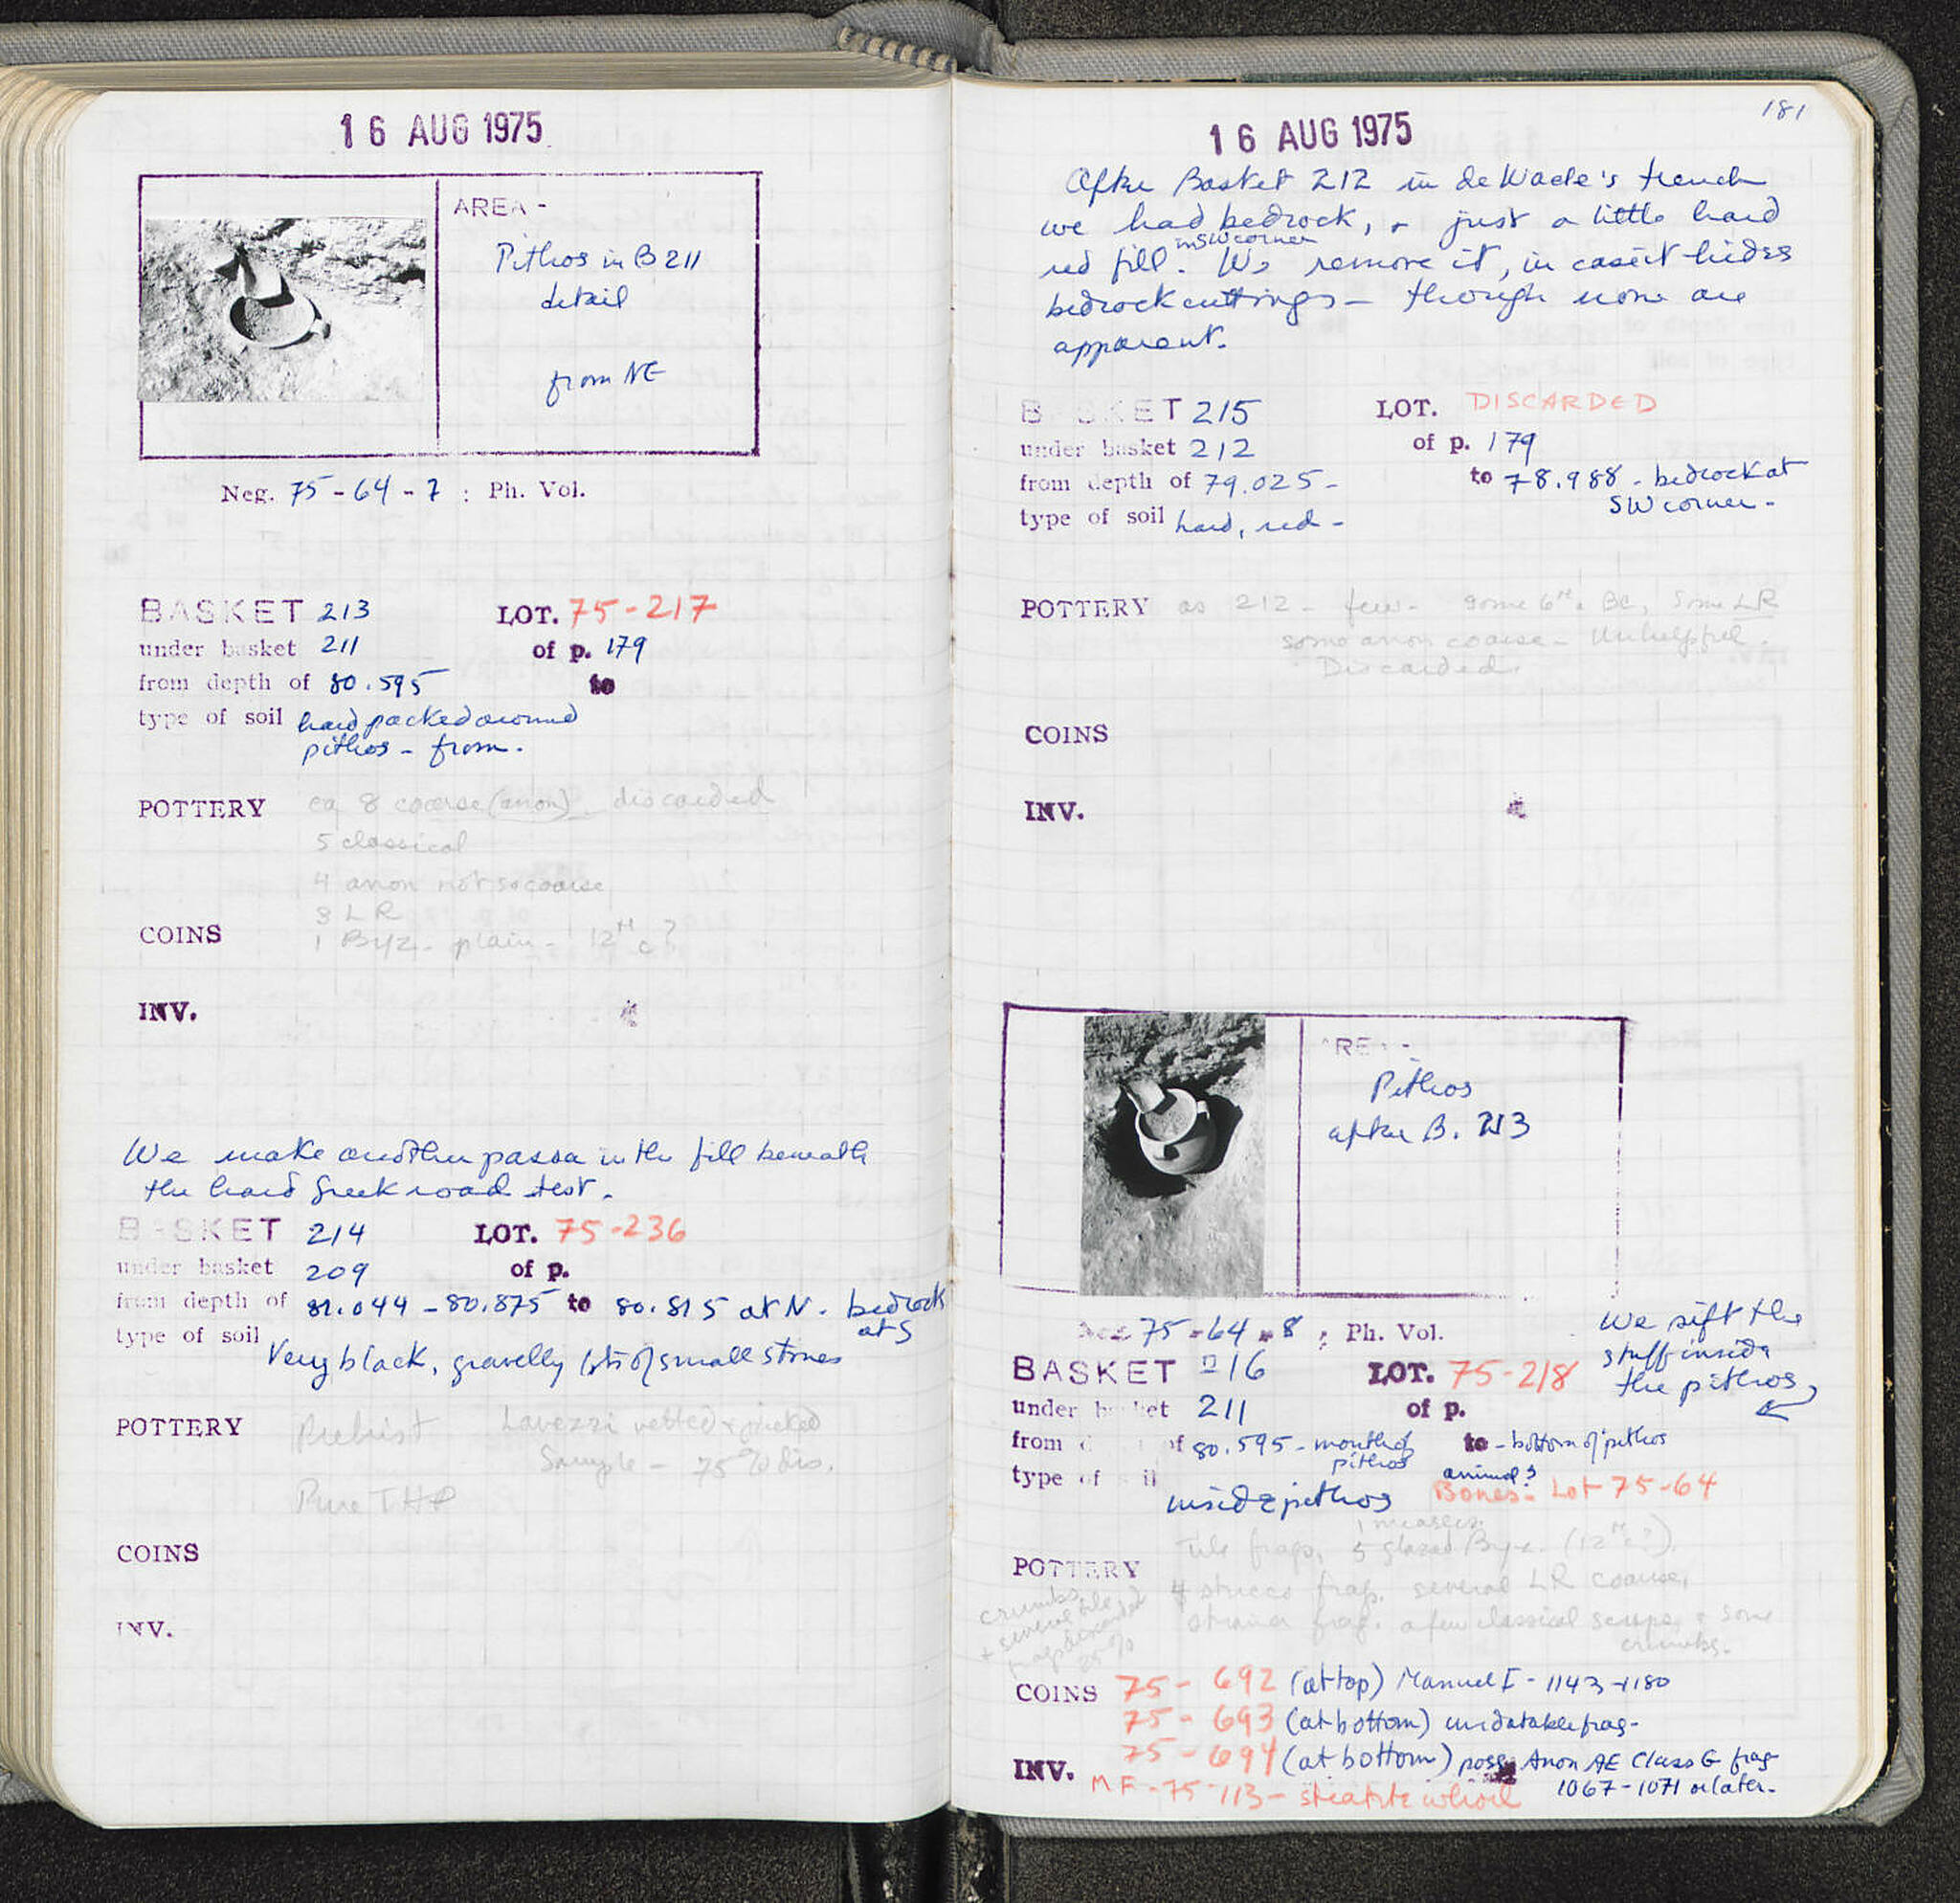 16 AUG 1975
AREA -
Pithos in B 211
detail
from NE
Neg. 75-64-7 : Ph. Vol.
BASKET 213 LOT. 75-217
under basket 211 of p. 179
from depth of 80.595 to
type of soil hard packed around
pithos - from.
POTTERY ca 8 coarse (anon) discarded
5 classical
4 anon not so coarse
3 LR
COINS 1 Byz - plain - 12th c?
INV.
We make another passa in the fill beneath
the hard Greek road test.
BASKET 214 LOT. 75-236
under basket 209 of p.
from depth of 81.044 - 80.875 to 80.815 at N. bedrock
at S
type of soil Very black, gravelly lots of small stones
POTTERY Prehist Lavezzi vetted & picked
Sample - 75% dis.
Pure
COINS
INV.
181
16 AUG 1975
After Basket 212 in deWaele's trench
we had bedrock, & just a little hard
red fill in SW corner. We remove it, in case it hides
bedrock cuttings - though none are
apparent.
BASKET 215 LOT. DISCARDED
under basket 212 of p. 179
from depth of 79.025 - to 78.988 - bedrock at
SW corner -
type of soil hard, red -
POTTERY as 212 - few - some 6th c BC, some LR
some anon coarse - Unhelpful.
Discarded.
COINS
INV.
AREA -
Pithos
after B. 213
Neg. 75-64-8 ; Ph. Vol.
We sift the
stuff inside
the pithos
BASKET 216 LOT. 75-218
under basket 211 of p.
from depth of 80.595 - mouth of
pithos to - bottom of pithos
type of soil inside pithos
animal?
Bones - Lot 75-64
POTTERY Tile frags, 5 glazed Byz. (12th c?),
4 stucco frag, several LR coarse,
strainer frag. a few classical scraps & some
crumbs.
crumbs
+ several tile
frag discarded
25%
COINS 75-692 (at top) Manuel I - 1143-1180
75-693 (at bottom) undatable frag-
75-694 (at bottom) poss Anon AE Class G frag
1067-1071 or later.
INV. MF-75-113 - steatite whorl